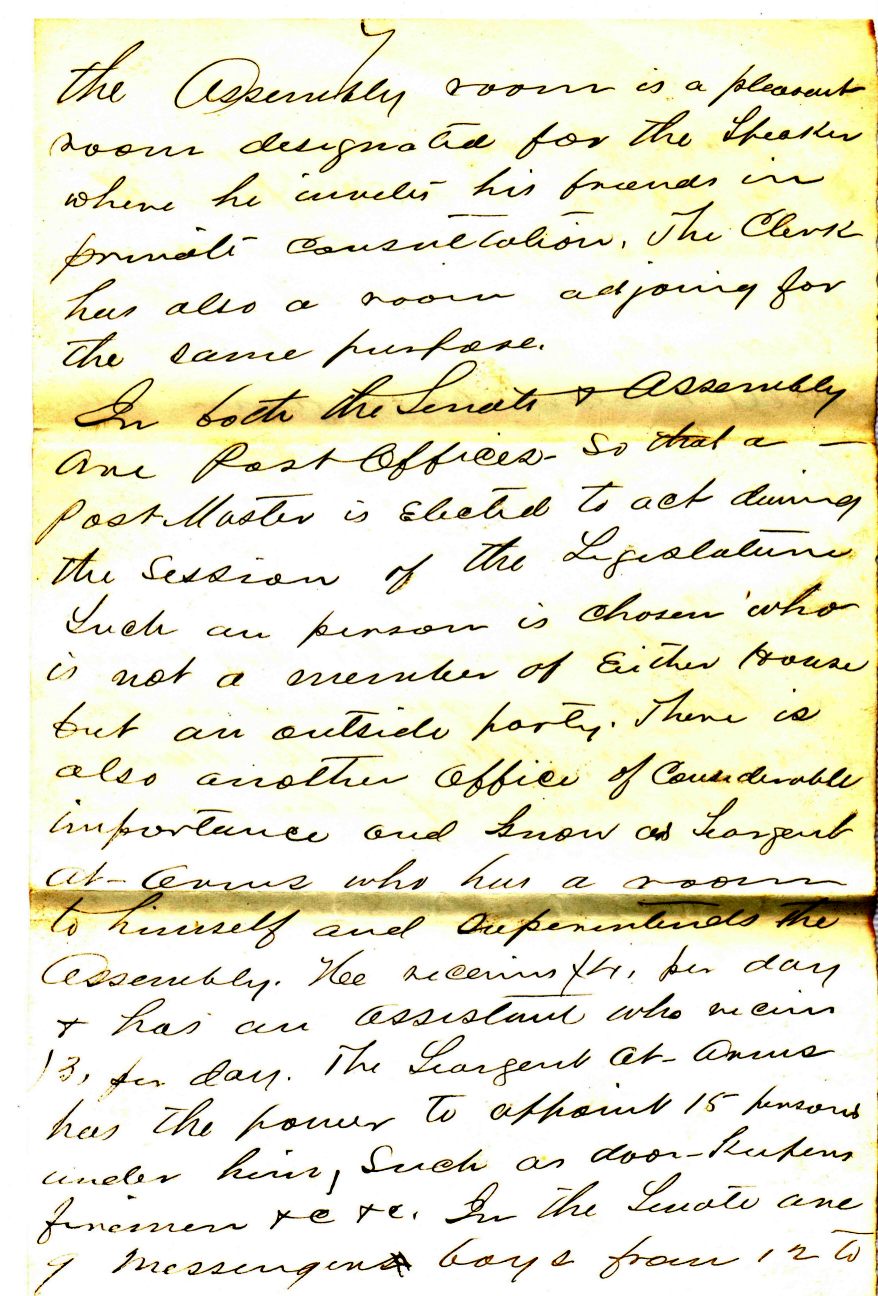 7
the Assembly room is a pleasant
room designated for the Speaker
where he invites his friends in
private consultation. The Clerk
has also a room adjoing for
the same purpose.
In both the Senate & Assembly
are Post Offices - So that a —
Post Master is Elected to act during
the Session of the Legislature
Such an person is chosen who
is not a member of Either House
but an outside party. There is
also another Office of Considerable
importance and know as Seargent
at-Arms who has a room
to himself and superintends the
Assembly. Hee receives $4. per day
& has an Assistant who receives
$3. per day. The Seargent at-Arms
has the power to appoint 15 persons
under him, Such as door-Keepers
firemen &c &c. In the Senate are
9 Messengers boys from 12 to